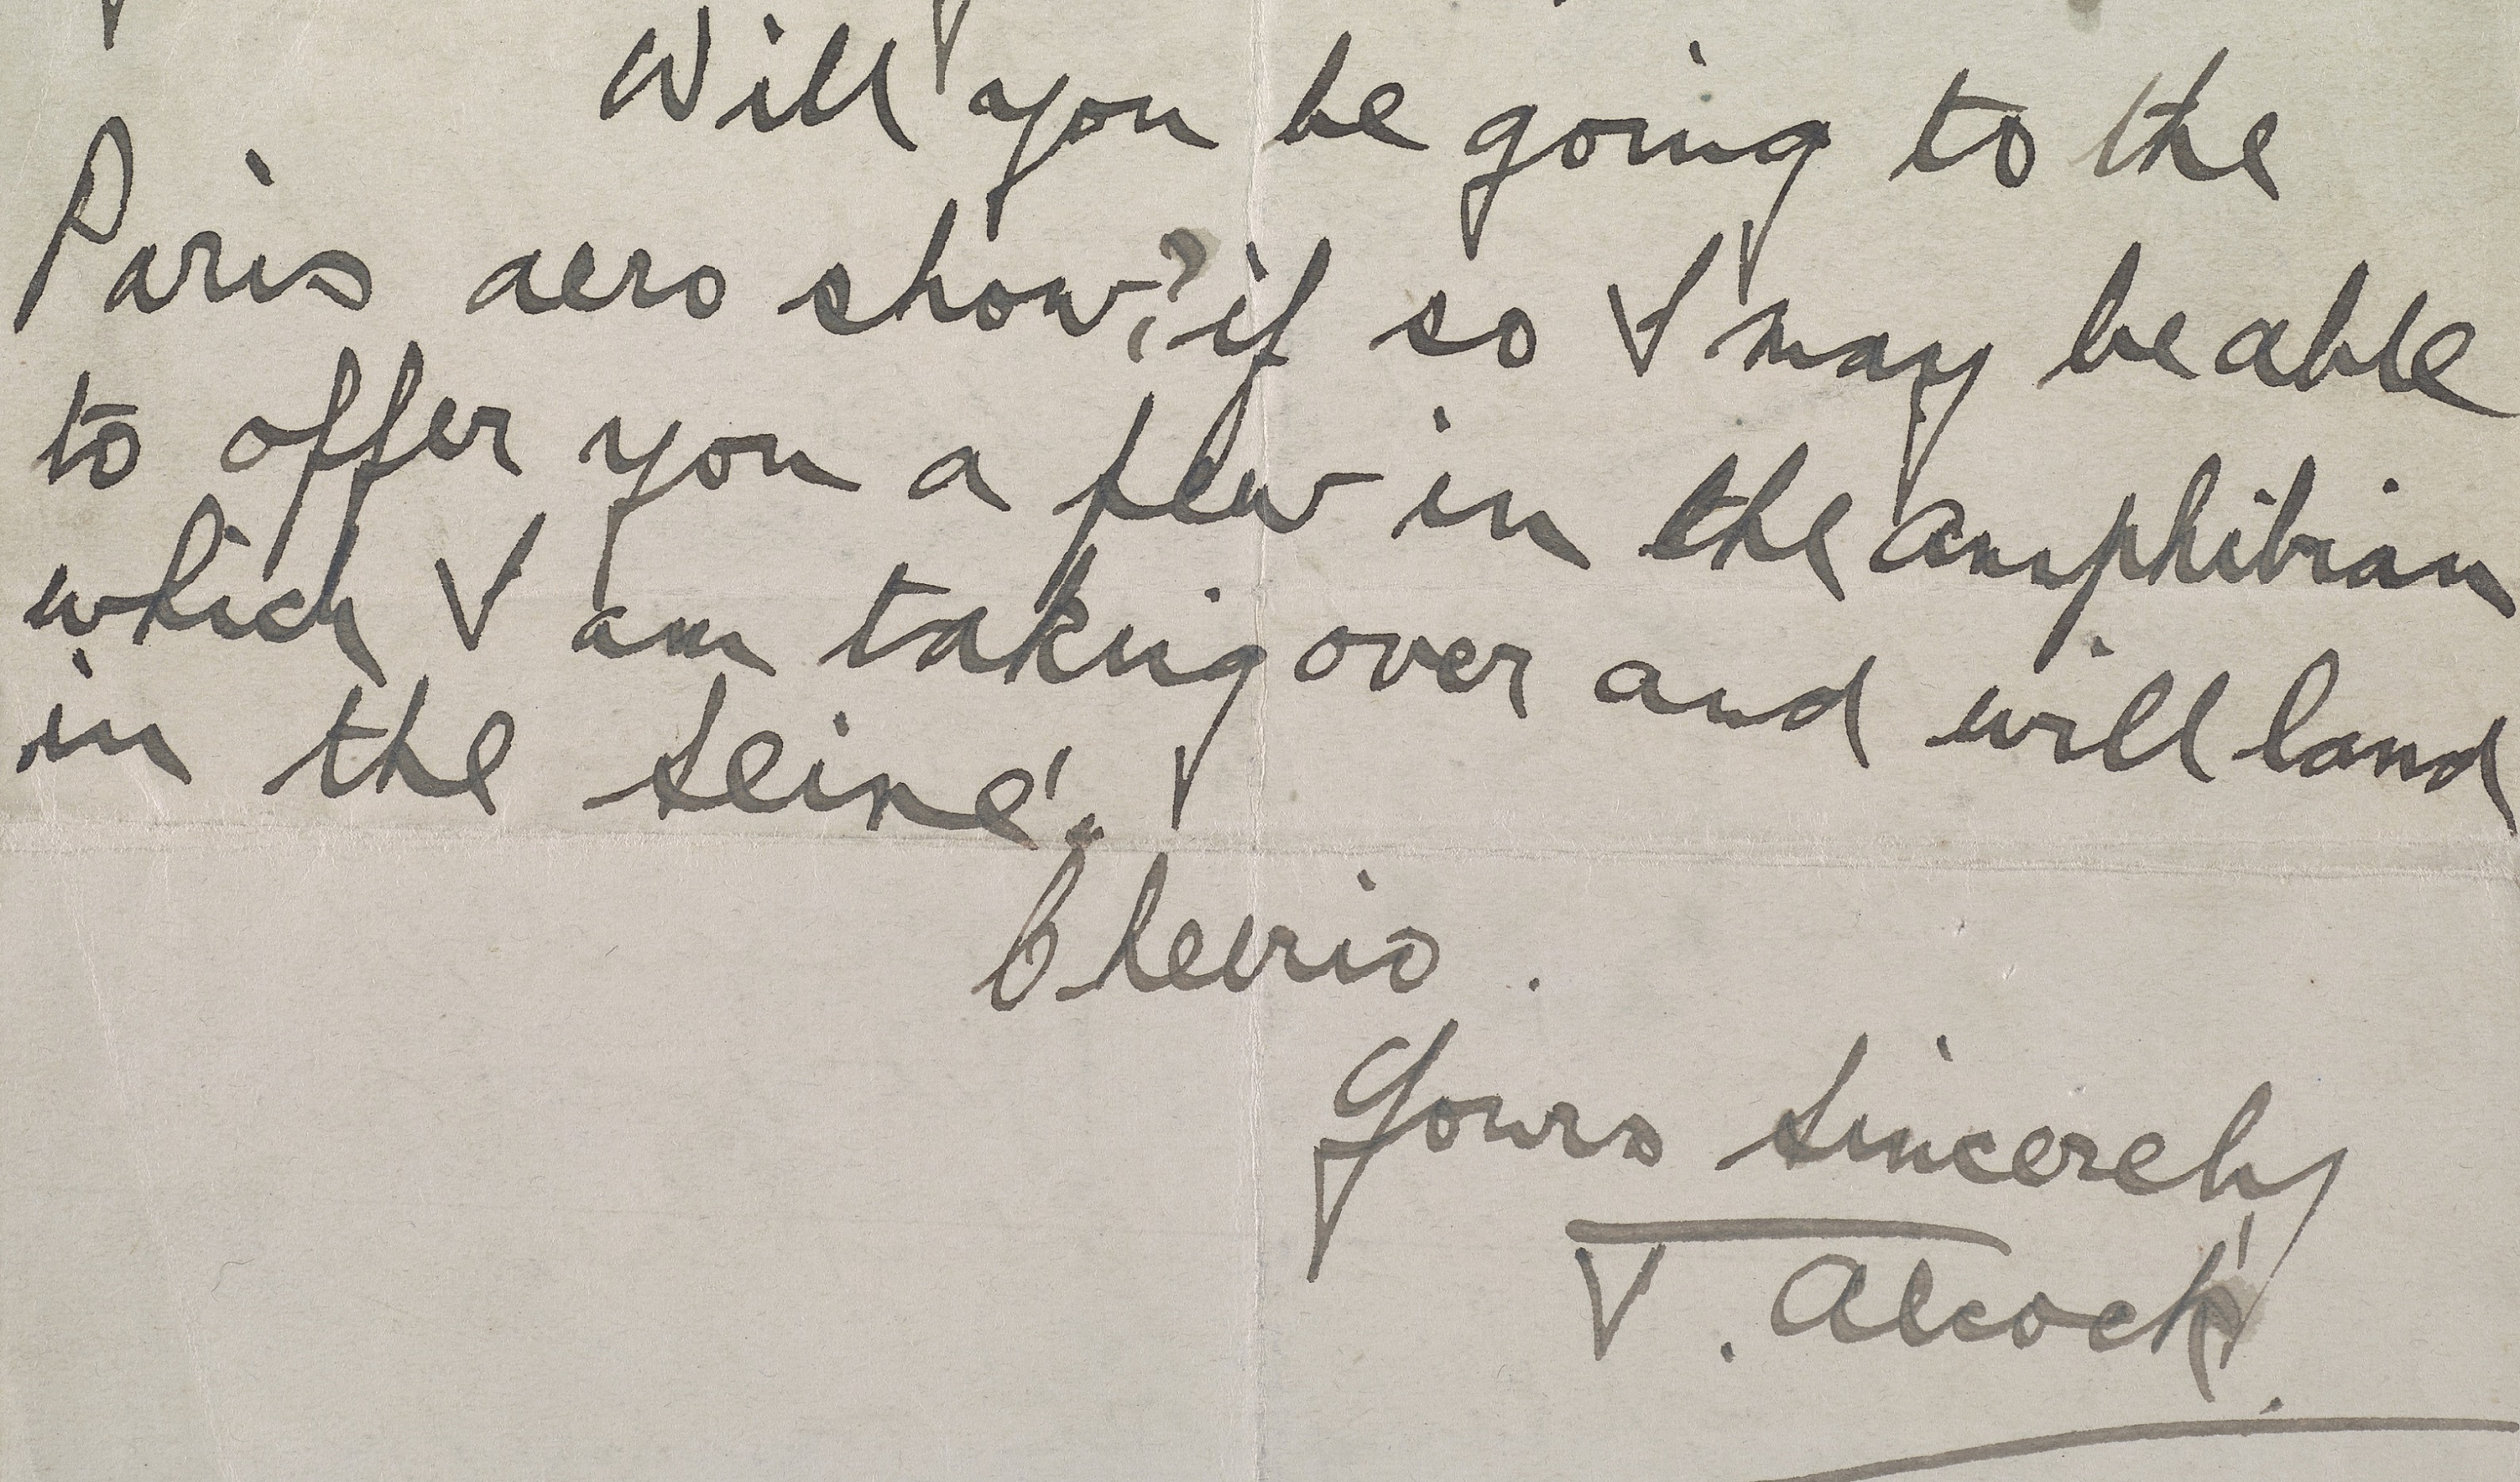 Will you be going to the
Paris aero show,? if so I may be able
to offer you a flew in the amphibian
which I am taking over and will land
in the Seine'.
Cheerio .
Yours Sincerely
J. Alcock